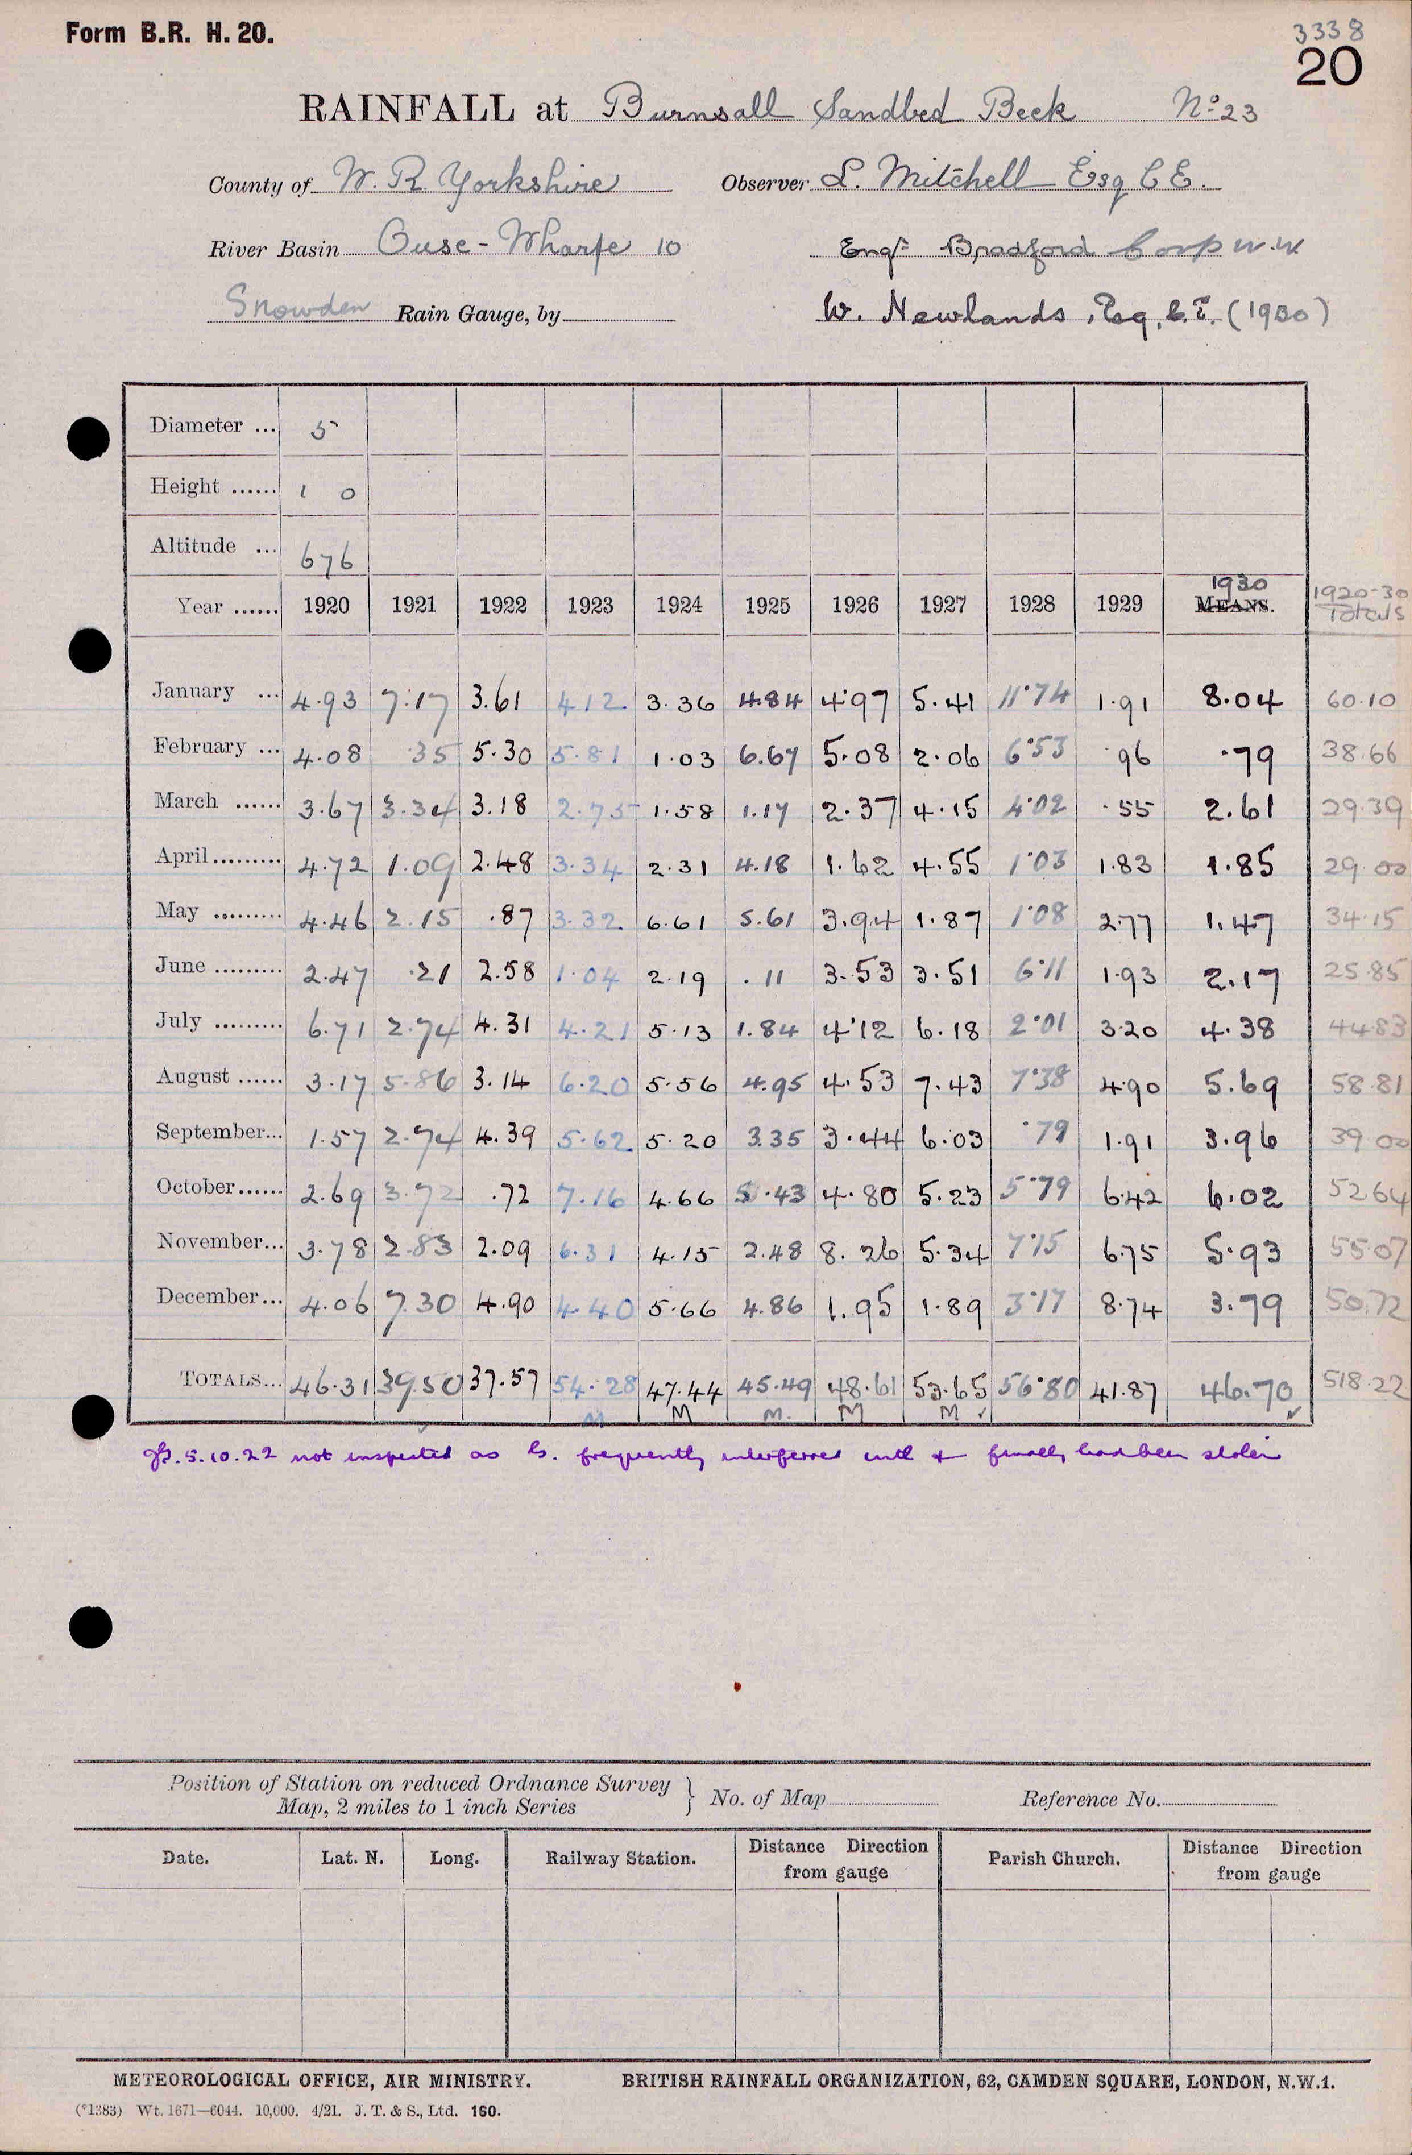 Form B.R. H. 20.
3338
20
RAINFALL at Burnsall Sandbed Beck No 23
County of W. R. Yorkshire Observer L. Mitchell Esq C E.
River Basin Ouse - Wharfe 10 Engr Bradford Corp W.W
Snowden Rain Gauge, by W. Newlands, Esq, C.E. (1930)
Diameter ... 5
Height ...... 1 0
Altitude ... 676
Year ...... 1920 1921 1922 1923 1924 1925 1926 1927 1928 1929 1930 MEANS. 1920-30 Totals
January ... 4.93 7.17 3.61 4.12 3.36 4.84 4.97 5.41 11.74 1.91 8.04 60.10
February ... 4.08 .35 5.30 5.81 1.03 6.67 5.08 2.06 6.53 .96 .79 38.66
March ...... 3.67 3.34 3.18 2.75 1.58 1.17 2.37 4.15 4.02 .55 2.61 29.39
April......... 4.72 1.09 2.48 3.34 2.31 4.18 1.62 4.55 1.03 1.83 1.85 29.00
May ......... 4.46 2.15 .87 3.32 6.61 5.61 3.94 1.87 1.08 2.77 1.47 34.15
June ......... 2.47 .21 2.58 1.04 2.19 .11 3.53 3.51 6.11 1.93 2.17 25.85
July ......... 6.71 2.74 4.31 4.21 5.13 1.84 4.12 6.18 2.01 3.20 4.38 44.83
August ...... 3.17 5.86 3.14 6.20 5.56 4.95 4.53 7.43 7.38 4.90 5.69 58.81
September... 1.57 2.74 4.39 5.62 5.20 3.35 3.44 6.03 .79 1.91 3.96 39.00
October...... 2.69 3.72 .72 7.16 4.66 5.43 4.80 5.23 5.79 6.42 6.02 52.64
November... 3.78 2.83 2.09 6.31 4.15 2.48 8.26 5.34 7.15 6.75 5.93 55.07
December... 4.06 7.30 4.90 4.40 5.66 4.86 1.95 1.89 3.17 8.74 3.79 50.72
TOTALS... 46.31 39.50 37.57 54.28 47.44 45.49 48.61 53.65 56.80 41.87 46.70 518.22
M M M. M M
5.10.22 not inspected as G. frequently interferred with & finally had been stolen
Position of Station on reduced Ordnance Survey Map, 2 miles to 1 inch Series } No. of Map Reference No.
Date. Lat. N. Long. Railway Station. Distance Direction from gauge Parish Church. Distance Direction from gauge
METEOROLOGICAL OFFICE, AIR MINISTRY. BRITISH RAINFALL ORGANIZATION, 62, CAMDEN SQUARE, LONDON, N.W.1.
(*1383) Wt. 1671—6044. 10,000. 4/21. J. T. & S., Ltd. 160.